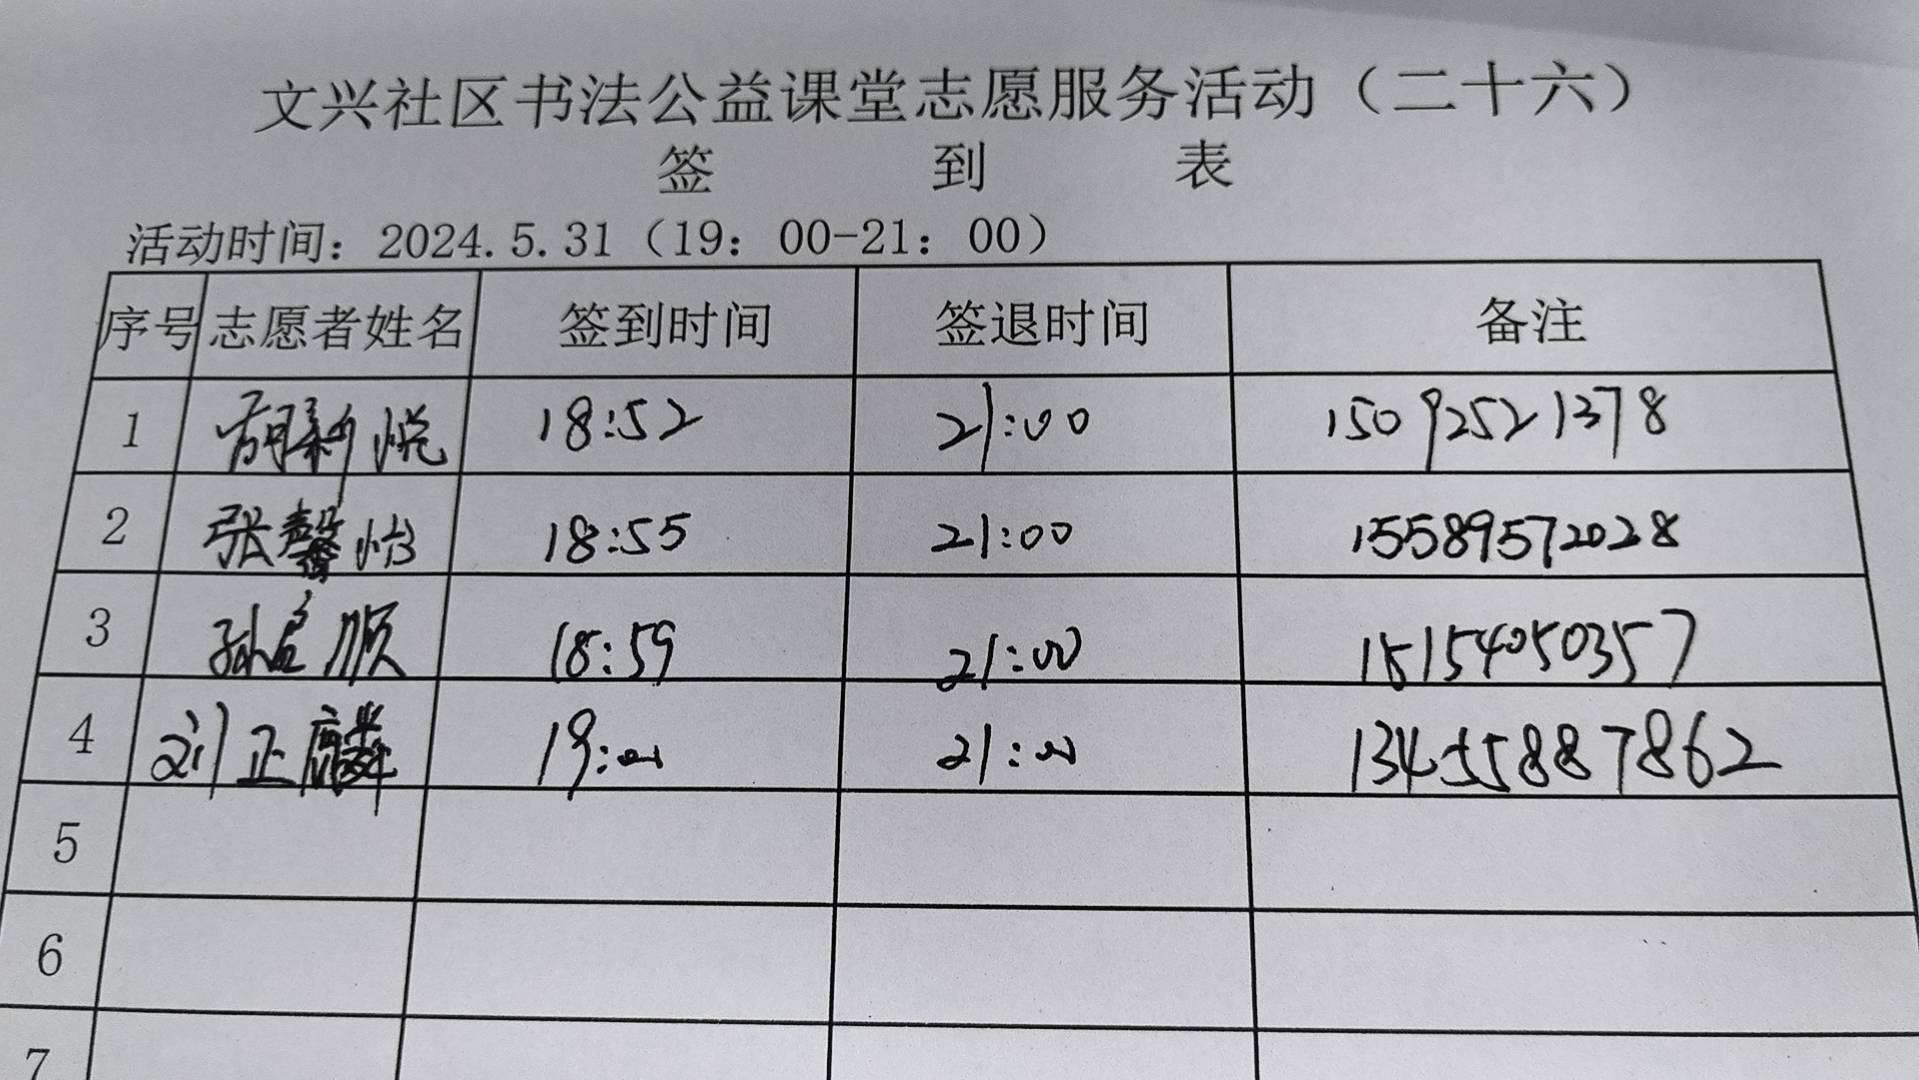 文兴社区书法公益课堂志愿服务活动（二十六）
签到表
活动时间：2024.5.31（19：00-21：00）
序号 志愿者姓名 签到时间 签退时间 备注
1 18:52 21:00 15092521378
2 张馨怡 18:55 21:00 15589572028
3 孙启顺 18:59 21:00 15154050357
4 刘正麟 19:00 21:00 13455887862
5
6
7